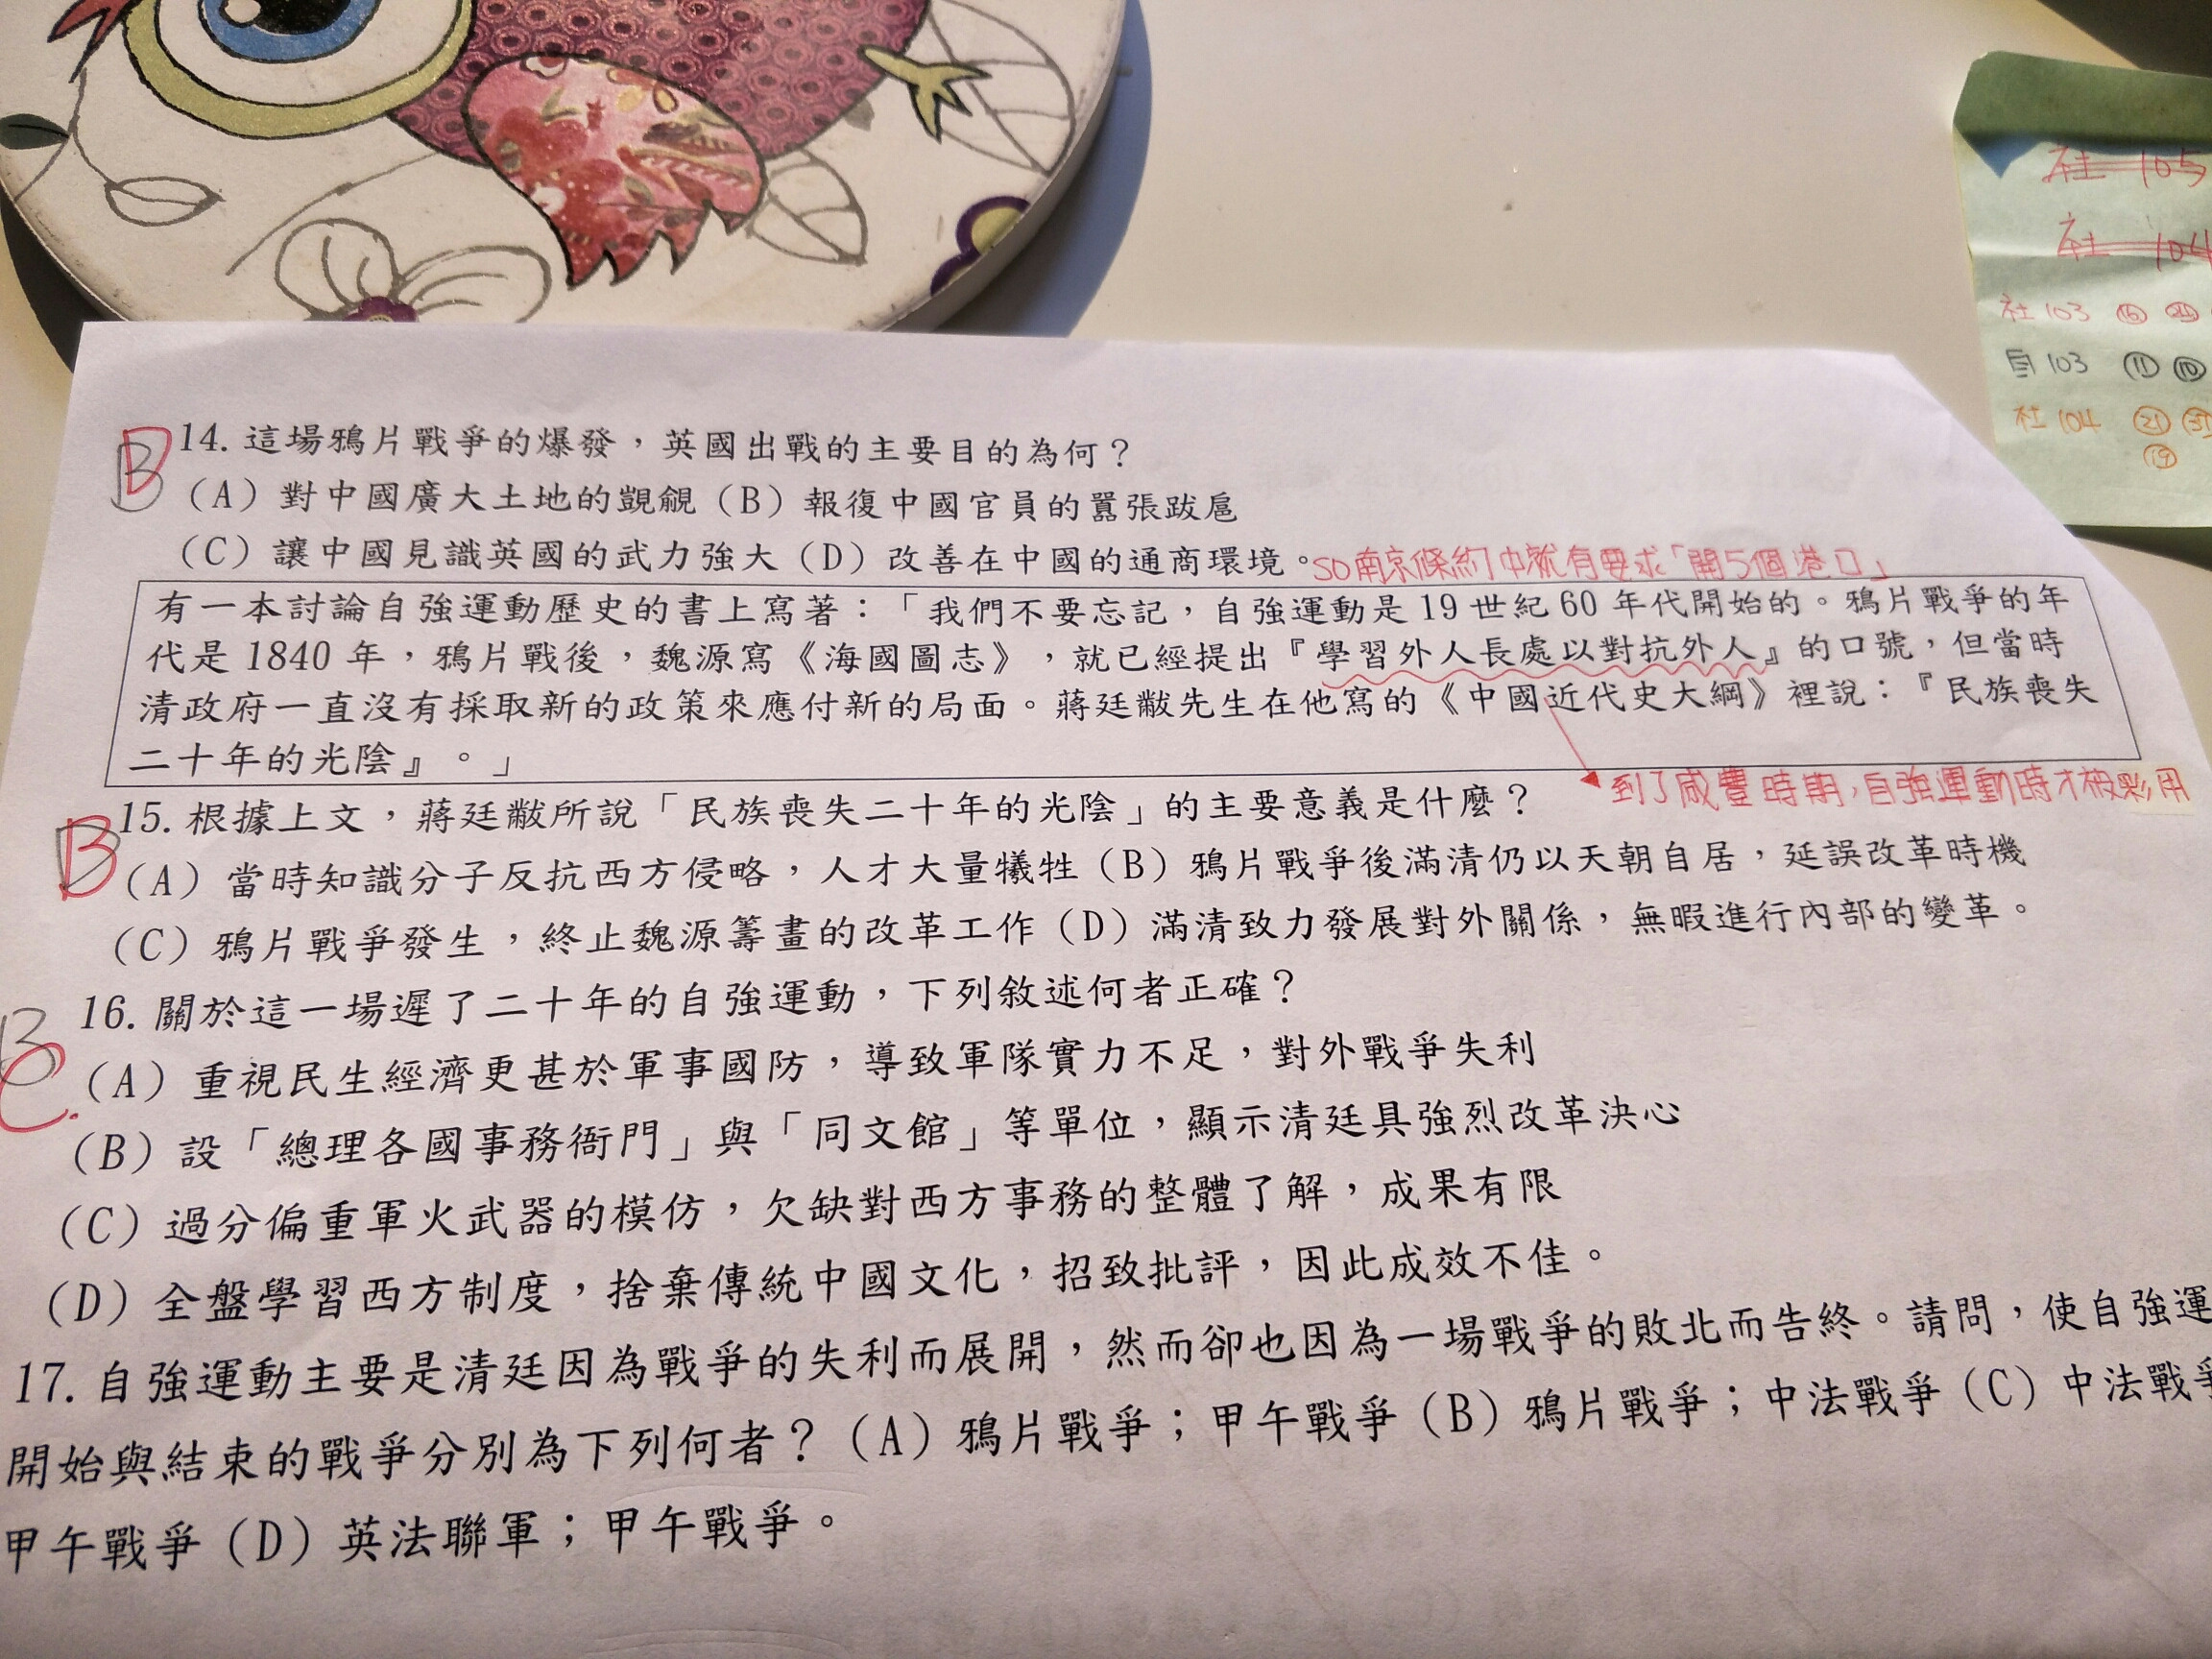 社 105
社 104
社 103 ⑯ ㉔
自 103 ⑪ ⑩
社 104 ㉑ ㉛
⑲
D
B
14. 這場鴉片戰爭的爆發，英國出戰的主要目的為何？
（A）對中國廣大土地的覬覦（B）報復中國官員的囂張跋扈
（C）讓中國見識英國的武力強大（D）改善在中國的通商環境。
so南京條約中就有要求「開5個港口」
有一本討論自強運動歷史的書上寫著：「我們不要忘記，自強運動是 19 世紀 60 年代開始的。鴉片戰爭的年
代是 1840 年，鴉片戰後，魏源寫《海國圖志》，就已經提出『學習外人長處以對抗外人』的口號，但當時
清政府一直沒有採取新的政策來應付新的局面。蔣廷黻先生在他寫的《中國近代史大綱》裡說：『民族喪失
二十年的光陰』。」
到了咸豐時期,自強運動時才被彩用
B
15. 根據上文，蔣廷黻所說「民族喪失二十年的光陰」的主要意義是什麼？
（A）當時知識分子反抗西方侵略，人才大量犧牲（B）鴉片戰爭後滿清仍以天朝自居，延誤改革時機
（C）鴉片戰爭發生，終止魏源籌畫的改革工作（D）滿清致力發展對外關係，無暇進行內部的變革。
B
C.
16. 關於這一場遲了二十年的自強運動，下列敘述何者正確？
（A）重視民生經濟更甚於軍事國防，導致軍隊實力不足，對外戰爭失利
（B）設「總理各國事務衙門」與「同文館」等單位，顯示清廷具強烈改革決心
（C）過分偏重軍火武器的模仿，欠缺對西方事務的整體了解，成果有限
（D）全盤學習西方制度，捨棄傳統中國文化，招致批評，因此成效不佳。
17. 自強運動主要是清廷因為戰爭的失利而展開，然而卻也因為一場戰爭的敗北而告終。請問，使自強運
開始與結束的戰爭分別為下列何者？（A）鴉片戰爭；甲午戰爭（B）鴉片戰爭；中法戰爭（C）中法戰爭
甲午戰爭（D）英法聯軍；甲午戰爭。